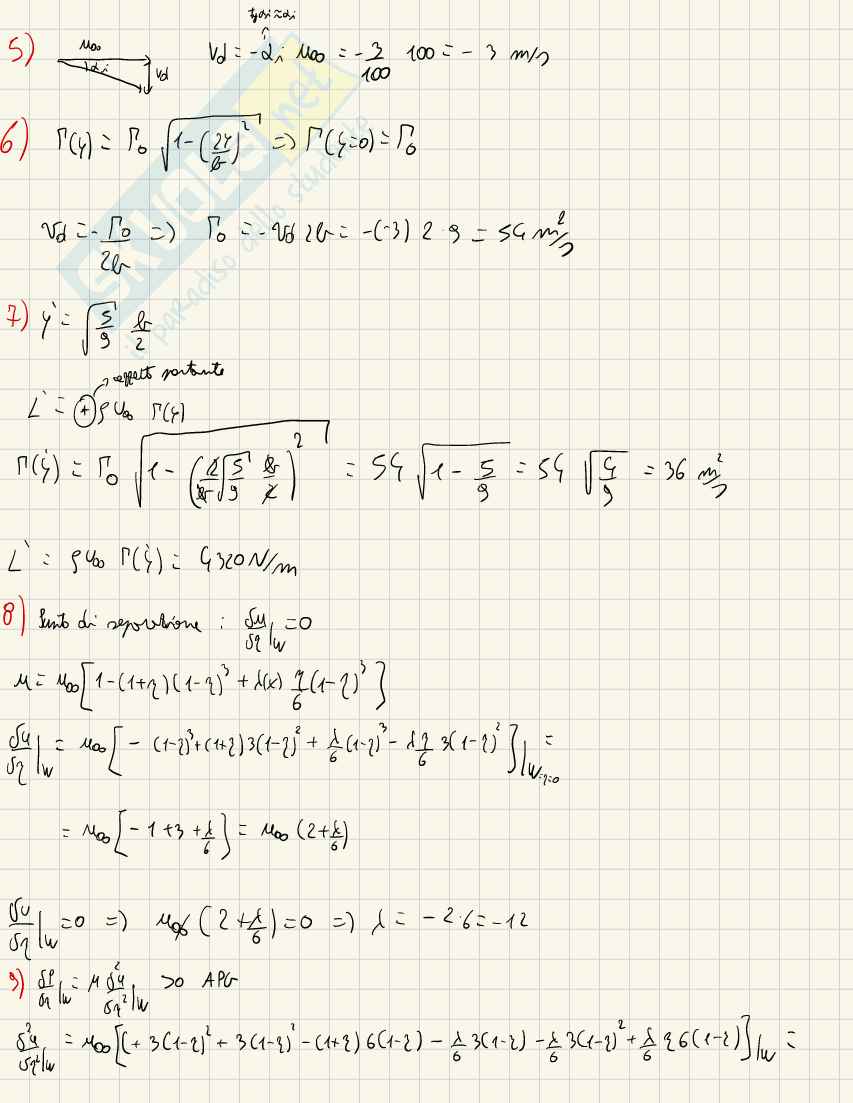 tgαi ≈ αi
5) u∞ αi vd Vd = -αi u∞ = -3/100 100 = -3 m/s
6) Γ(y) = Γ0 √(1-(2y/b)^2) => Γ(y=0) = Γ0
Vd = -Γ0/2b => Γ0 = -Vd 2b = -(-3) 2 · 9 = 54 m²/s
7) y` = √(5/9) b/2
→ effetto portante
L` = (+) ρ U∞ Γ(y)
Γ(y`) = Γ0 √(1-(2/b √(5/9) b/2)^2) = 54 √(1-5/9) = 54 √(4/9) = 36 m²/s
L` = ρ U∞ Γ(y`) = 4320 N/m
8) Punto di separazione : δu/δη|w = 0
u = u∞[1-(1+η)(1-η)^3 + λ(x) η/6 (1-η)^3]
δu/δη|w = u∞[-(1-η)^3+(1+η)3(1-η)^2 + λ/6 (1-η)^3 - λ η/6 3(1-η)^2]|w=η=0 =
= u∞[-1+3+λ/6] = u∞(2+λ/6)
δu/δη|w = 0 => u∞(2+λ/6) = 0 => λ = -2·6 = -12
9) δp/δx|w = μ δ²u/δη²|w >0 APG
δ²u/δη²|w = u∞[(+3(1-η)^2 + 3(1-η)^2 -(1+η)6(1-η) - λ/6 3(1-η) - λ/6 3(1-η)^2 + λ/6 η6(1-η)]|w =
SKUOLA.net
il paradiso dello studente